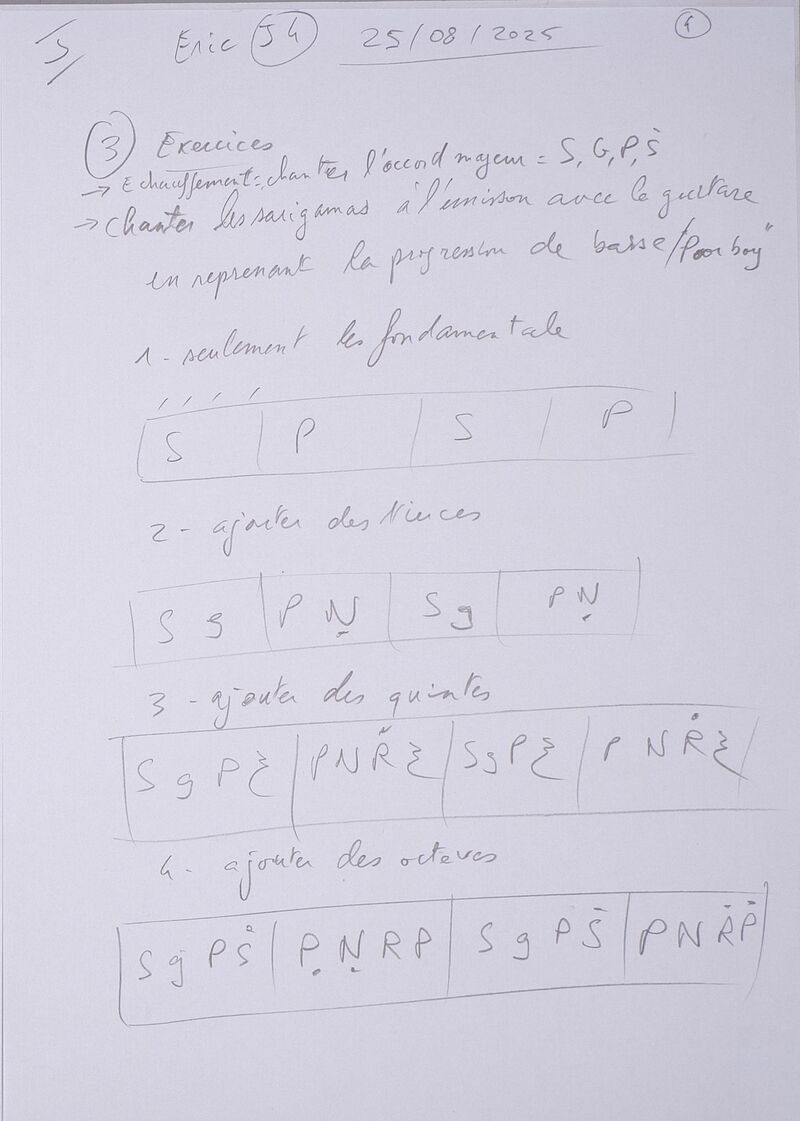 Eric J4 25/08/2025
3 Exercices
→ Echauffement: chanter l'accord majeur = S, G, P, Ṡ
→ chanter les sarigamas à l'unisson avec la guitare
en reprenant la progression de basse/"Poor boy"
1 - seulement les fondamentale
S | P | S | P
2 - ajouter des tierces
S g | P Ṇ | S g | P Ṇ
3 - ajouter des quintes
S g P ξ | P N Ṙ ξ | S g P ξ | P N Ṙ ξ
4 - ajouter des octaves
S g P Ṡ | P̣ Ṇ R P | S g P Ṡ | P N Ṙ Ṗ